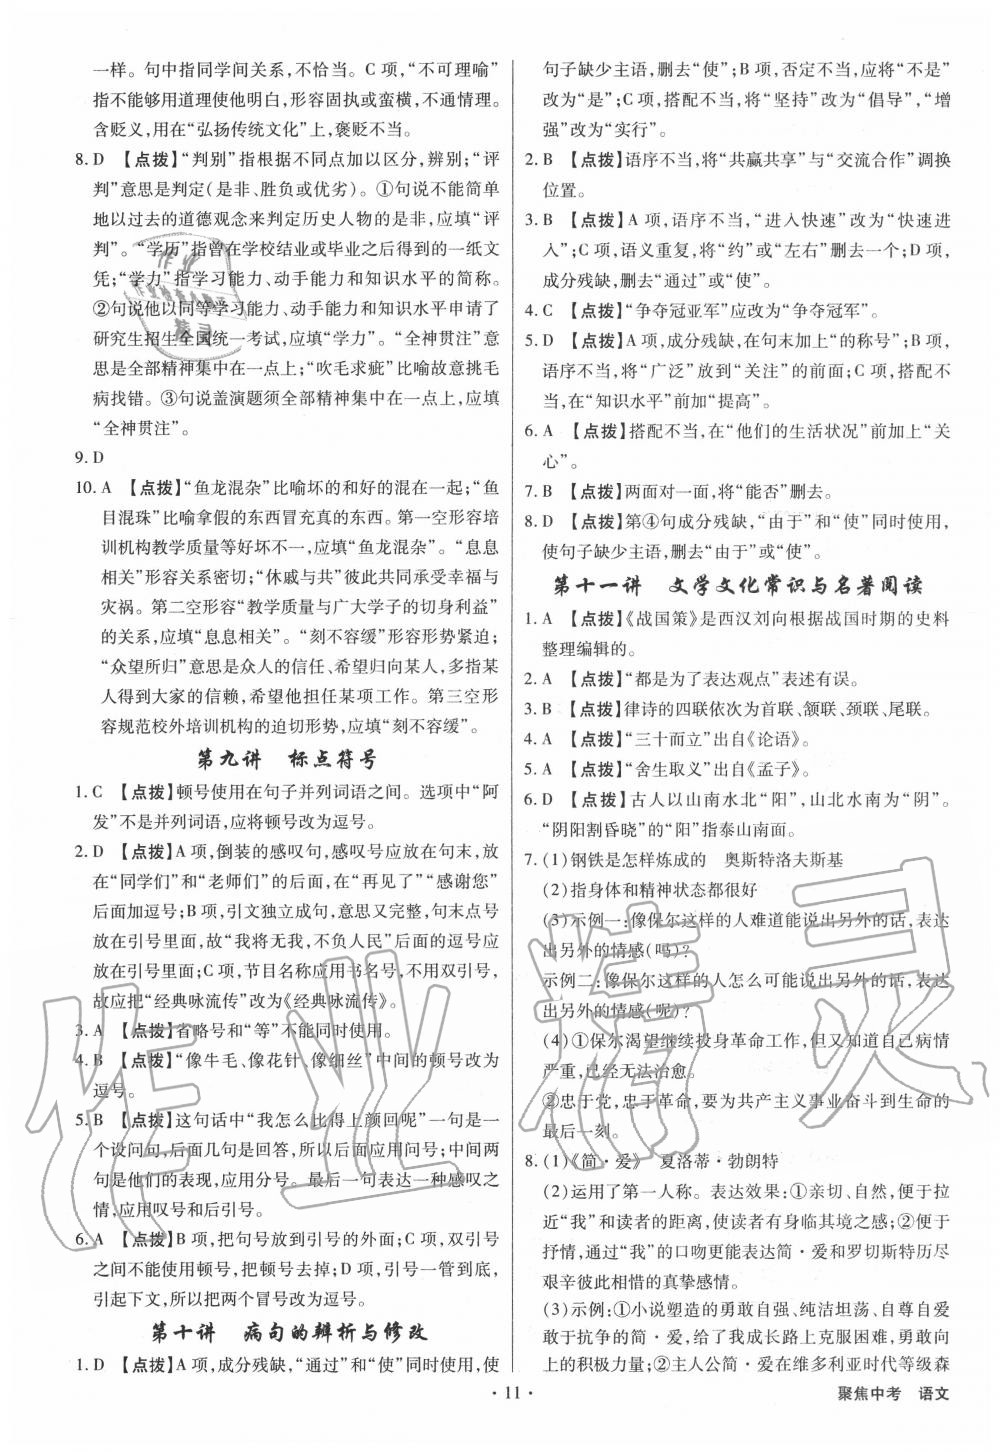 一样。句中指同学间关系,不恰当。C 项,“不可理喻”
指不能够用道理使他明白,形容固执或蛮横,不通情理。
含贬义,用在“弘扬传统文化”上,褒贬不当。
8. D 【点拨】“判别”指根据不同点加以区分,辨别;“评
判”意思是判定(是非、胜负或优劣)。①句说不能简单
地以过去的道德观念来判定历史人物的是非,应填“评
判”。“学历”指曾在学校结业或毕业之后得到的一纸文
凭;“学力”指学习能力、动手能力和知识水平的简称。
②句说他以同等学习能力、动手能力和知识水平申请了
研究生招生全国统一考试,应填“学力”。“全神贯注”意
思是全部精神集中在一点上;“吹毛求疵”比喻故意挑毛
病找错。③句说盖演题须全部精神集中在一点上,应填
“全神贯注”。
9. D
10. A 【点拨】“鱼龙混杂”比喻坏的和好的混在一起;“鱼
目混珠”比喻拿假的东西冒充真的东西。第一空形容培
训机构教学质量等好坏不一,应填“鱼龙混杂”。“息息
相关”形容关系密切;“休戚与共”彼此共同承受幸福与
灾祸。第二空形容“教学质量与广大学子的切身利益”
的关系,应填“息息相关”。“刻不容缓”形容形势紧迫;
“众望所归”意思是众人的信任、希望归向某人,多指某
人得到大家的信赖,希望他担任某项工作。第三空形
容规范校外培训机构的迫切形势,应填“刻不容缓”。
第九讲 标点符号
1. C 【点拨】顿号使用在句子并列词语之间。选项中“阿
发”不是并列词语,应将顿号改为逗号。
2. D 【点拨】A 项,倒装的感叹句,感叹号应放在句末,放
在“同学们”和“老师们”的后面,在“再见了”“感谢您”
后加逗号;B 项,引文独立成句,意思又完整,句末点号
放在引号里面,故“我将无我,不负人民”后面的逗号应
放在引号里面;C 项,节目名称应用书名号,不用双引号,
故应把“经典咏流传”改为《经典咏流传》。
3. A 【点拨】省略号和“等”不能同时使用。
4. B 【点拨】“像牛毛、像花针、像细丝”中间的顿号改为
逗号。
5. B 【点拨】这句话中“我怎么比得上颜回呢”一句是一
个设问句,后面几句是回答,所以后面应用问号;中间两
句是他们的表现,应用逗号。最后一句表达一种感叹之
情,应用叹号和后引号。
6. A 【点拨】B 项,把句号放到引号的外面;C 项,双引号
之间不能使用顿号,把顿号去掉;D 项,引号一管到底,
引起下文,所以把两个冒号改为逗号。
第十讲 病句的辨析与修改
1. D 【点拨】A 项,成分残缺,“通过”和“使”同时使用,使
句子缺少主语,删去“使”;B 项,否定不当,应将“不是”
改为“是”;C 项,搭配不当,将“坚持”改为“倡导”,“增
强”改为“实行”。
2. B 【点拨】语序不当,将“共赢共享”与“交流合作”调换
位置。
3. B 【点拨】A 项,语序不当,“进入快速”改为“快速进
入”;C 项,语义重复,将“约”或“左右”删去一个;D 项,
成分残缺,删去“通过”或“使”。
4. C 【点拨】“争夺冠亚军”应改为“争夺冠军”。
5. D 【点拨】A 项,成分残缺,在句末加上“的称号”;B 项,
语序不当,将“广泛”放到“关注”的前面;C 项,搭配不
当,在“知识水平”前加“提高”。
6. A 【点拨】搭配不当,在“他们的生活状况”前加上“关
心”。
7. B 【点拨】两面对一面,将“能否”删去。
8. D 【点拨】第④句成分残缺,“由于”和“使”同时使用,
使句子缺少主语,删去“由于”或“使”。
第十一讲 文学文化常识与名著阅读
1. A 【点拨】《战国策》是西汉刘向根据战国时期的史料
整理编辑的。
2. A 【点拨】“都是为了表达观点”表述有误。
3. B 【点拨】律诗的四联依次为首联、颔联、颈联、尾联。
4. A 【点拨】“三十而立”出自《论语》。
5. A 【点拨】“舍生取义”出自《孟子》。
6. D 【点拨】古人以山南水北“阳”,山北水南为“阴”。
“阴阳割昏晓”的“阳”指泰山南面。
7. (1)钢铁是怎样炼成的 奥斯特洛夫斯基
(2)指身体和精神状态都很好
(3)示例一:像保尔这样的人难道能说出另外的话,表达
出另外的情感(吗)?
示例二:像保尔这样的人怎么可能说出另外的话,表达
出另外的情感(呢)?
(4)①保尔渴望继续投身革命工作,但又知道自己病情
严重,已经无法治愈。
②忠于党,忠于革命,要为共产主义事业奋斗到生命的
最后一刻。
8. (1)《简·爱》 夏洛蒂·勃朗特
(2)运用了第一人称。表达效果:①亲切、自然,便于拉
近“我”和读者的距离,使读者有身临其境之感;②便于
抒情,通过“我”的口吻更能表达简·爱和罗切斯特历尽
艰辛彼此相惜的真挚感情。
(3)示例:①小说塑造的勇敢自强、纯洁坦荡、自尊自爱
敢于抗争的简·爱,给了我成长路上克服困难,勇敢向
上的积极力量;②主人公简·爱在维多利亚时代等级森
· 11 ·
聚焦中考 语文
作业精灵